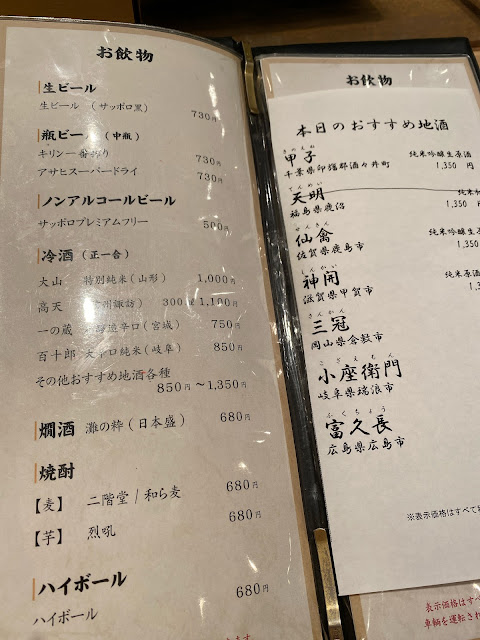 お飲物
生ビール
生ビール （サッポロ黒） 730円
瓶ビール（中瓶）
キリン一番搾り 730円
アサヒスーパードライ 730円
ノンアルコールビール
サッポロプレミアムフリー 500円
冷酒（正一合）
大山 特別純米（山形） 1,000円
高天 州諏訪） 300 1,100円
一の蔵 辛口（宮城） 750円
百十郎 大辛口純米（岐阜） 850円
その他おすすめ地酒各種
850円～1,350円
燗酒 灘の粋（日本盛） 680円
焼酎
【麦】 二階堂/和ら麦 680円
【芋】 烈吼 680円
ハイボール
ハイボール 680円
お飲物
本日のおすすめ地酒
きのえね
甲子 純米吟醸生原酒
千葉県印旛郡酒々井町 1,350 円
てんめい
天明
福島県 1,350 円
せんきん
仙禽 純米吟醸生
佐賀県鹿島市 1,350
しんかい
神開 純米原酒
滋賀県甲賀市
さんかん
三冠
岡山県倉敷市
こざえもん
小座衛門
岐阜県瑞浪市
ふくちょう
富久長
広島県広島市
※表示価格はすべて
表示価格はすべ
車輌を運転され